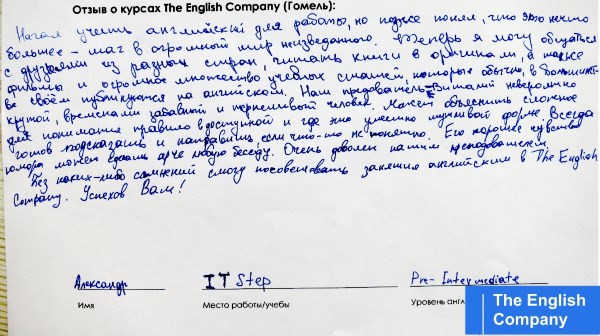 Отзыв о курсах The English Company (Гомель):
Начал учить английский для работы, но позже понял, что это нечто
большее – шаг в огромный мир неизведанного. Теперь я могу общаться
с друзьями из разных стран, читать книги в оригинале, а также
фильмы и огромное множество учебных статей, которые обычно, в большинст-
ве своём публикуются на английском. Наш предователь – Виталий невероятно
крутой, временами забавный и терпеливый человек. Может объяснить сложное
для понимания правило в доступной и где это уместно шутливой форме. Всегда
готов подсказать и направить если что-то не понятно. Его хорошее чувство
юмора может сделать ярче любую беседу. Очень доволен нашим преподавателем.
Без каких-либо сомнений смогу посоветовать занятия английским в The English
Company. Успехов Вам!
Александр
IT Step
Pre-Intermediate
Имя
Место работы/учебы
Уровень англ
The English
Company